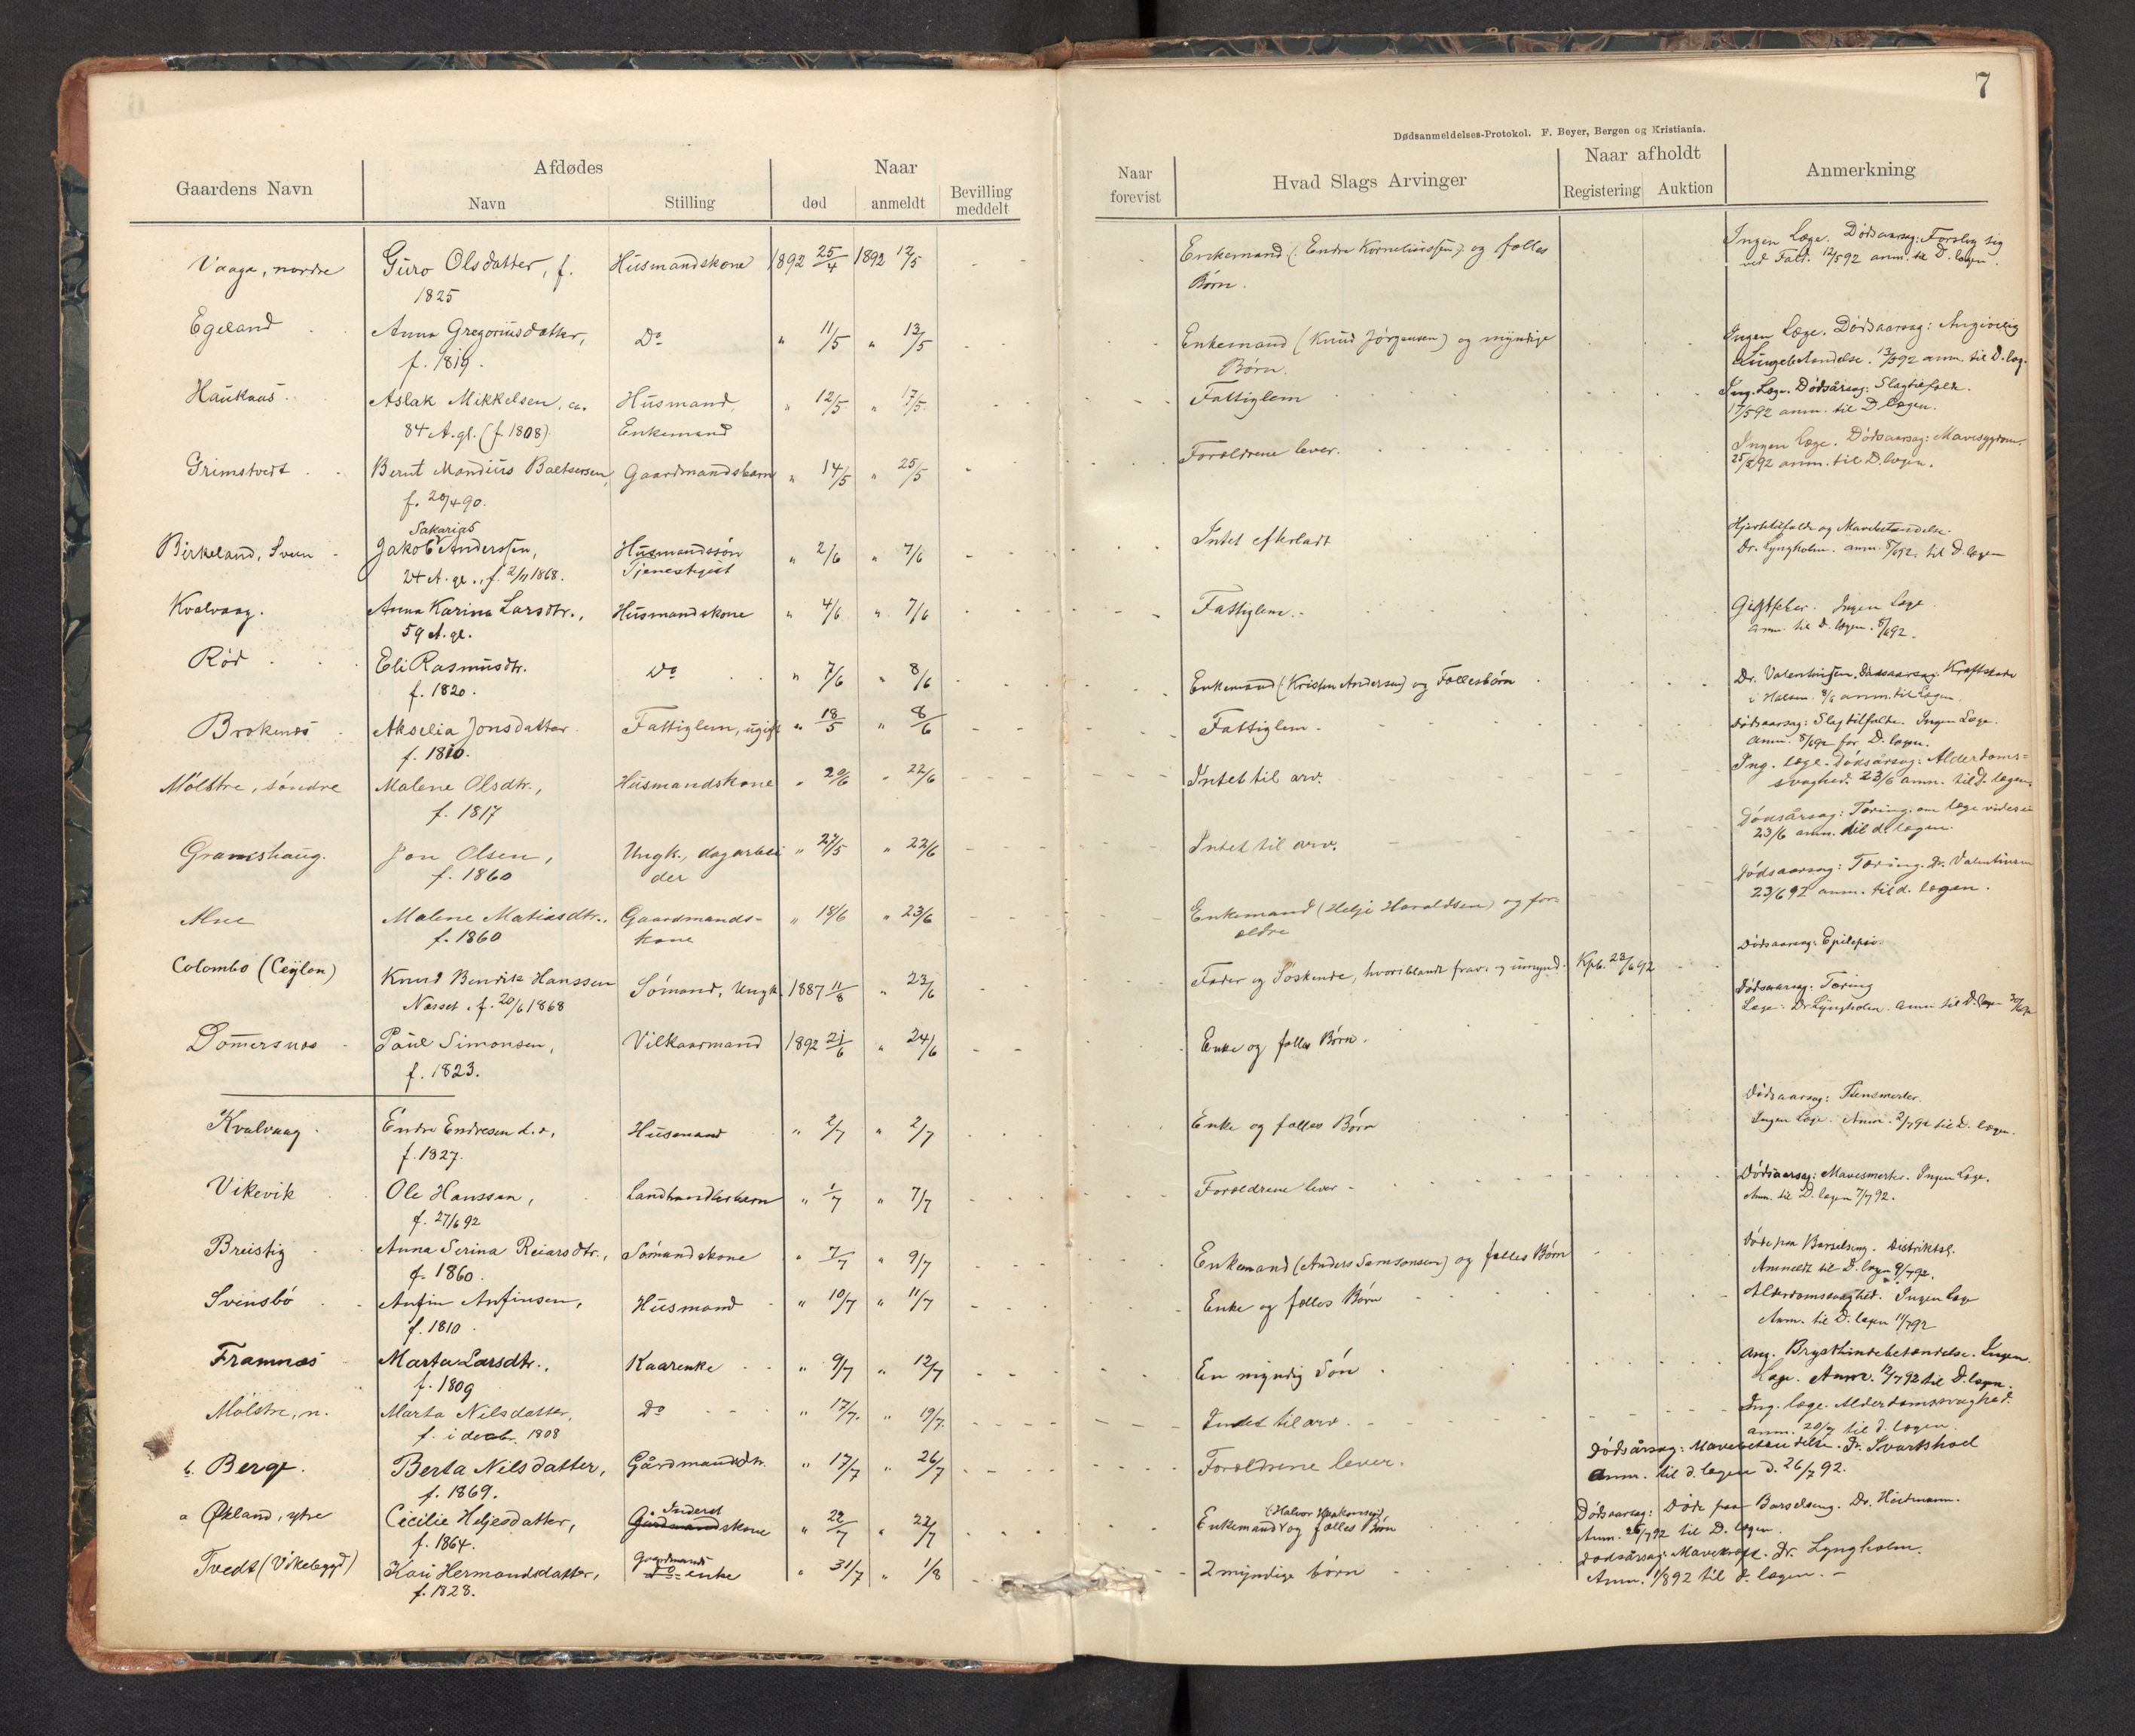 7
Dødsanmeldelses-Protokol. F. Beyer, Bergen og Kristiania.
Gaardens Navn
Afdødes
Navn
Stilling
Naar
død
anmeldt
Bevilling
meddelt
Naar
forevist
Hvad Slags Arvinger
Naar afholdt
Registering
Auktion
Anmerkning
Vaage, nordre Guro Olsdatter, f. Husmandskone 1892 25/4 1892 12/5 Enkemand (: Endre Korneliussen:) og fælles Ingen Læge. Dødsaarsag: Forslog sig
1825 Børn. ved Fald. 12/5 92 anm. til D. lægen.
Egeland Anna Gregoriusdatter, Do " 11/5 " 13/5 Enkemand (Knud Jørgensen) og myndige Ingen Læge. Dødsaarsag: Angivelig
f. 1819. Børn. Lungebetændelse. 13/5 92 anm. til D. læg.
Haukaas Aslak Mikkelsen, ca. Husmand, " 12/5 " 17/5 Fattiglem Ing. Læge. Dødsårsag: Slagtilfælde.
84 A. gl. (f. 1808) Enkemand 17/5 92 anm. til D. lægen.
Grimstvedt Bernt Mandius Baltsersen, Gaardmandsbarn " 14/5 " 25/5 Forældrene lever. Ingen Læge. Dødsaarsag: Mavesygdom.
f. 20/4 90. 25/5 92 anm. til D. lægen.
Sakarias
Birkeland, Svein Jakob Anderssen, Husmandssøn " 2/6 " 7/6 Intet efterladt Hjertetilfælde og Mavebetændelse.
24 A. gl., f. 2/11 1868. Tjenestgjet Dr. Lyngholm. anm. 8/6 92. til D. lægen
Kvalvaag. Anna Karina Larsdtr., Husmandskone " 4/6 " 7/6 Fattiglem. Gigtfeber. Ingen Læge
59 A. gl. anm. til D. lægen. 8/6 92.
Rød Eli Rasmusdtr. Do " 7/6 " 8/6 Enkemand (Kristen Andersen) og Fællesbørn Dr. Valentinsen. Dødsaarsag: Kræftskade
f. 1820. i Halsen. 8/6 anm. til Lægen.
Brokenes Akselia Jonsdatter Fattiglem, ugift " 18/5 " 8/6 Fattiglem. Dødsaarsag: Slagtilfælde. Ingen Læge.
f. 1810. anm. 8/6 92 for D. lægen.
Mølstre, søndre Malene Olsdtr., Husmandskone " 20/6 " 22/6 Intet til arv. Ing. læge. Dødsårsag: Alderdoms-
f. 1817 svaghed. 23/6 anm. til d. lægen.
Graneshaug. Jon Olsen, Ungk., dagarbei " 27/5 " 22/6 Intet til arv. Dødsårsag: Tæring. om læge vides ei
f. 1860 der 23/6 anm. til d. lægen.
Alne Malene Matiasdtr., Gaardmands- " 18/6 " 23/6 Enkemand (Helje Haraldsen) og for- Dødsaarsag: Tæring. Dr. Valentinsen
f. 1860 kone ældre 23/6 92 anm. til d. lægen.
Colombo (Ceylon) Knud Bendik Hanssen Sømand, Ungk. 1887 11/8 " 23/6 Fader og Søskende, hvoriblandt frav. og umynd. Kpb. 23/6 92 Dødsaarsag: Epilepsi.
Næsset. f. 20/6 1868
Dommersnes Paul Simonsen, Vilkaarmand 1892 21/6 " 24/6 Enke og fælles Børn. Dødsaarsag: Tæring
f. 1823. Læge: Dr. Lyngholm. anm til D. lægen
Kvalvaag. Endre Endresen d.e., Husmand " 2/7 " 2/7 Enke og fælles Børn Dødsaarsag:
f. 1827. Ingen Læge. Anm. 2/7 92 til D. lægen.
Vikevik Ole Hanssen, Landhandlerbarn " 1/7 " 7/7 Forældrene lever. Dødsaarsag: Mavesmerter. Ingen Læge.
f. 27/6 92 Anm. til D. lægen 7/7 92.
Breistig Anna Serina Reiarsdtr., Sømandskone " 7/7 " 9/7 Enkemand (Anders Samsonsen) og fælles Børn Døde paa Barselseng. Distriktsl.
f. 1860. Anmeldt til D. lægen 9/7 92.
Svensbø Anfin Anfinsen, Husmand " 10/7 " 11/7 Enke og fælles Børn Alderdomssvaghed. Ingen læge
f. 1810 Anm. til D. lægen 11/7 92
Framnæs Marta Larsdtr., Kaarenke " 9/7 " 12/7 En myndig Søn Ang. Brysthindebetændelse. Ingen
f. 1809 Læge. Anm. 12/7 92 til D. lægen.
Mølstre, n. Marta Nilsdatter, Do " 17/7. " 19/7. Intet til arv. Ing. læge. Alderdomssvaghed.
f. i decbr. 1808 anm. 20/7 til d. lægen
b. Berge. Berta Nilsdatter, Gårdmandsdtr. " 17/7 " 26/7 Forældrene lever. Dødsårsag: Mavebetændelse. Dr. Svartshod
f. 1869. Anm. til d. lægen d. 26/7 92.
Inderst (Halvor Haakonsen)
a Økland, ytre Cicilie Heljesdatter, Gårdmandskone " 22/7 " 22/7 Enkemand og fælles Børn Dødsaarsag: Døde paa Barselseng. Dr. Heitmann.
f. 1864. Anm. 26/7 92 til D. lægen.
Gaardmands
Tvedt (Vikebygd) Kari Hermandsdatter, Do enke " 31/7 " 1/8 2 myndige børn Dødsårsag: Mavekræft. Dr. Lyngholm.
f. 1828. Anm. 1/8 92 til d. lægen.